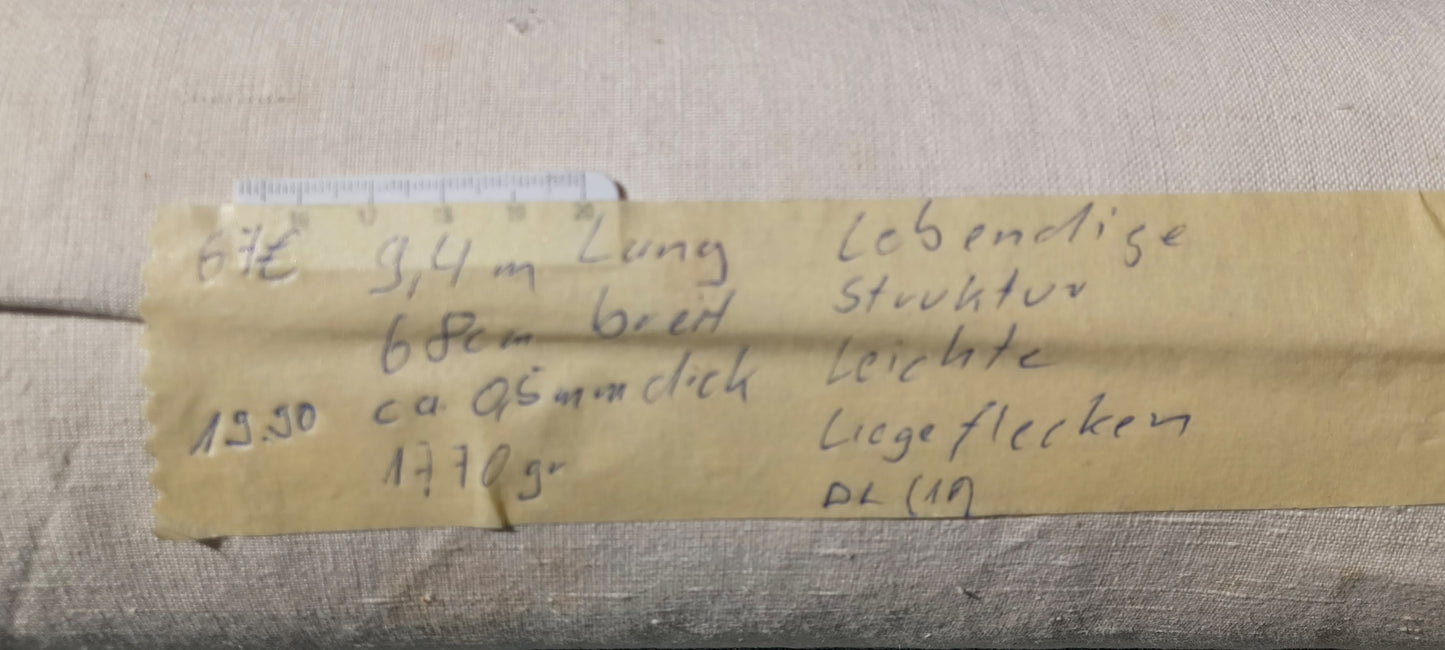 16 17 18 19 20
67€ 9,4 m Lang
68cm breit
19.90 ca. 0,5 mm dick
1770 gr
Lebendige
Struktur
Leichte
Liegeflecken
DL (19)